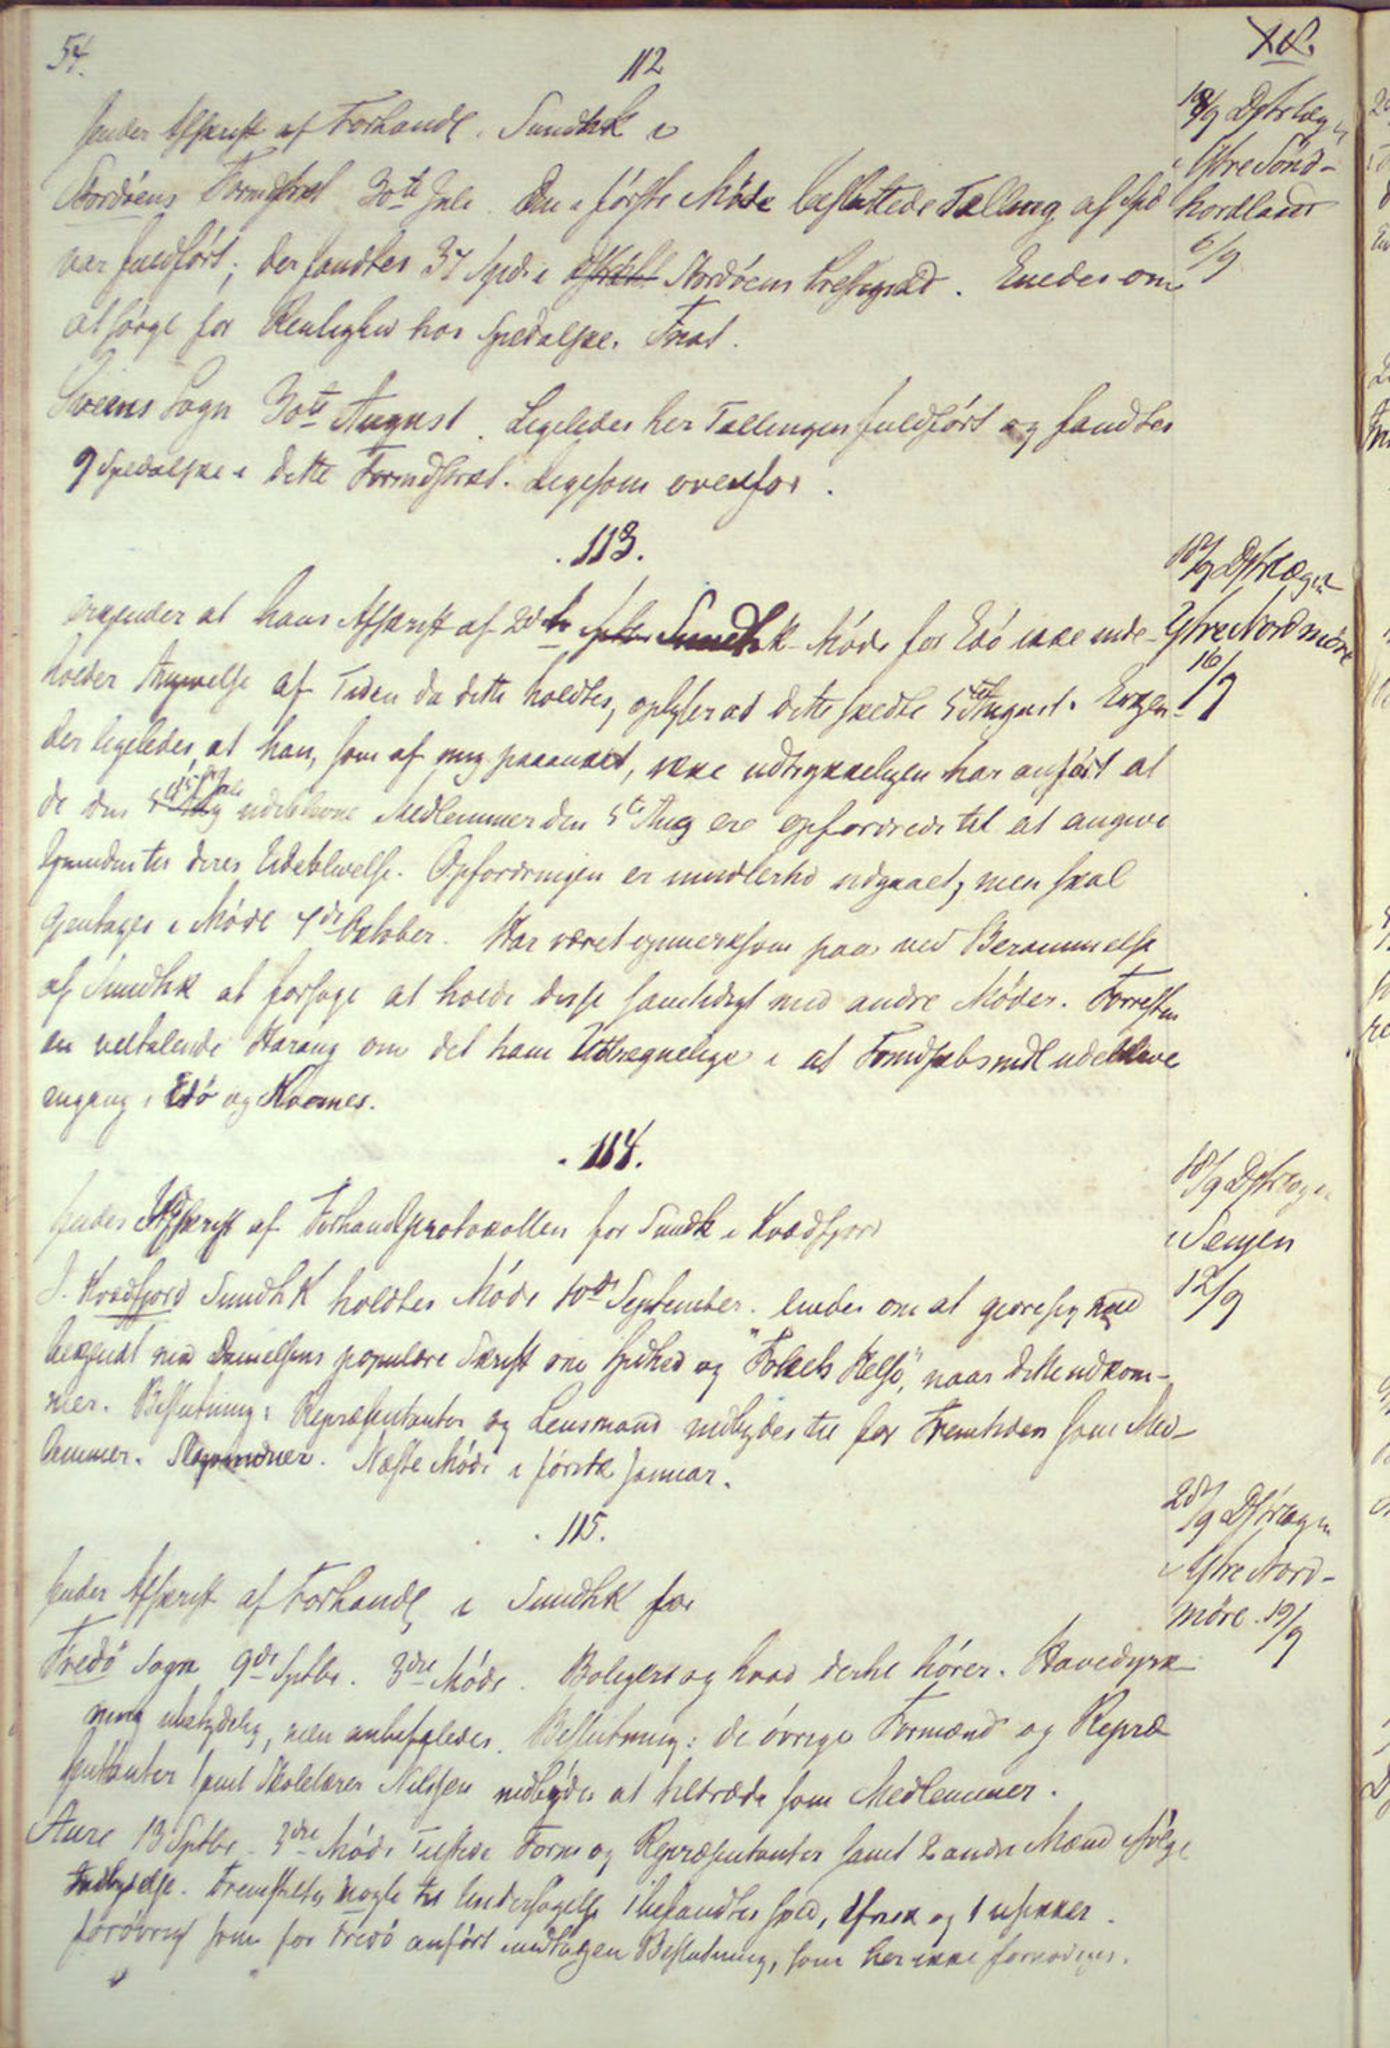 54.
112
sender Afskrift af Forhandl. i Sundhk i
Stordöens Formdskab 30te Juli. Den i förste Möde besluttede Tælling af Spd
var fuldfört; der fandtes 37 Spd. i Stordöens Præstegjeld. Enedes om
at sörge for Renlighed hos Spedalske. Fnat.
Sveens Sogn 30te August. Ligeledes her Tællingen fuldfört og fandtes
9 Spedalske i dette Formdskab. Ligesom ovenfor.
18/9 Dstrlægen
i Ytre Sönd-
hordland
6/9
113.
erkjender at hans Afskrift af 2det Sundhk Möde for Edö ikke inde-
holder Angivelse af Tiden da dette holdtes, oplyser at dette skedte 5te August. Erkjen-
der ligeledes, at han, som af mig paaanket, ikke udtrykkeligen har anfört at
de den udeblevne Medlemmer den 5te Aug ere opfordrede til at angive
Grunden til deres Udeblivelse. Opfordringen er imidlertid udgaaet, men skal
gjentages i Möde 4de October. Har været opmerksom paa ved Berammelse
af Sundhk at forsöge at holde disse samtidigt med andre Möder. Forresten
en veltalende Harang om det ham Utilregnelige i at Formdskabsmdl udeblive
engang i Edö og Kvernes.
18/9 Dstrlægen
Ytre Nordmöre
16/9
114.
sender Afskrift af Forhandlsprotokollen for Sundhk i Kvædfjord
I Kvædfjord SundhK holdtes Möde 10de September. Enedes om at gjöre sig
bekjendt med Danielsens populære Skrift om Spdhed og "Folkets Helse", naar dette udkom-
mer. Beslutning: Repræsentanter og Lensmand indbydes til for Fremtiden som Med-
lemmer. Næste Möde i förste Januar.
18/9 Dstrlægen
i Senjen
12/9
115.
sender Afskrift af Forhandl i SundhK for
Tredö Sogn 9de Sptbr. 3die Möde. Boligers og hvad dertil hörer. Havedyrk-
ning ubetydelig, men anbefaledes. Beslutning: de övrige Formænd og Repræ
sentanter samt Skolelærer Nilssen indbydes at tiltræde som Medlemmer.
Aure 13 Sptbr. 3die Möde Tilstede Form og Repræsentanter samt 2 andre Mænd ifölge
Indbydelse. Fremstilltes nogle til Undersögelse 1 befandtes spd, 1 frisk og 1 usikker.
forövrigt som for Tredö anfört indtagen Beslutning, som her ikke
20/9 Dstrlægen
i Ytre Nord-
möre. 19/9